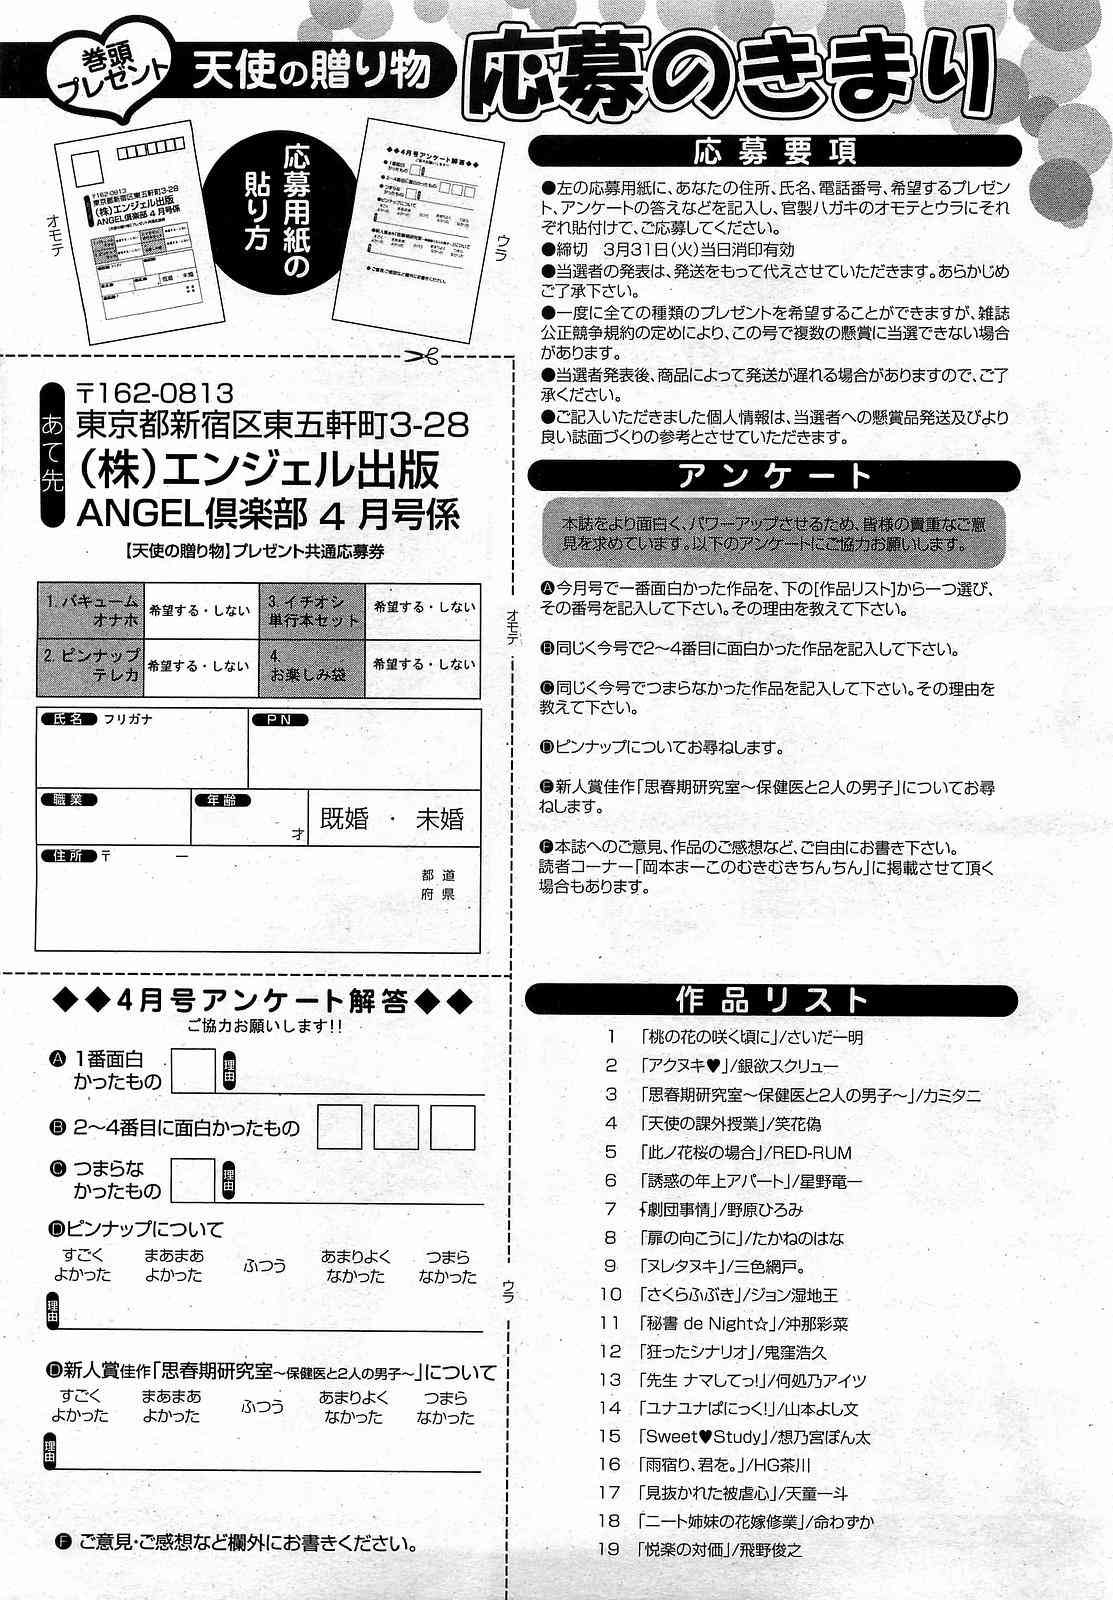 巻頭
プレゼント
天使の贈り物
応募のきまり
オモテ
応募用紙の
貼り方
ウラ
〒162-0813
東京都新宿区東五軒町3-28
(株)エンジェル出版
ANGEL倶楽部 4 月号係
◆◆4月号アンケート解答◆◆
応募要項
●左の応募用紙に、あなたの住所、氏名、電話番号、希望するプレゼン
ト、アンケートの答えなどを記入し、官製ハガキのオモテとウラにそれ
ぞれ貼付けて、ご応募してください。
●締切 3月31日(火)当日消印有効
●当選者の発表は、発送をもって代えさせていただきます。あらかじめ
ご了承下さい。
●一度に全ての種類のプレゼントを希望することができますが、雑誌
公正競争規約の定めにより、この号で複数の懸賞に当選できない場合
があります。
●当選者発表後、商品によって発送が遅れる場合がありますので、ご了
承ください。
●ご記入いただきました個人情報は、当選者への懸賞品発送及びより
良い誌面づくりの参考とさせていただきます。
あて先
〒162-0813
東京都新宿区東五軒町3-28
(株)エンジェル出版
ANGEL倶楽部 4 月号係
【天使の贈り物】プレゼント共通応募券
1. バキューム
オナホ
希望する・しない
3. イチオシ
単行本セット
希望する・しない
2. ピンナップ
テレカ
希望する・しない
4.
お楽しみ袋
希望する・しない
オモテ
氏名 フリガナ
PN
職業
年齢
才
既婚 ・ 未婚
住所 〒 ー
都 道
府 県
アンケート
本誌をより面白く、パワーアップさせるため、皆様の貴重なご意
見を求めています。以下のアンケートにご協力お願いします。
A今月号で一番面白かった作品を、下の[作品リスト]から一つ選び、
その番号を記入して下さい。その理由を教えて下さい。
B同じく今号で2〜4番目に面白かった作品を記入して下さい。
C同じく今号でつまらなかった作品を記入して下さい。その理由を
教えて下さい。
Dピンナップについてお尋ねします。
E新人賞佳作「思春期研究室〜保健医と2人の男子」についてお尋
ねします。
F本誌へのご意見、作品のご感想など、ご自由にお書き下さい。
読者コーナー「岡本まーこのむきむきちんちん」に掲載させて頂く
場合もあります。
◆◆4月号アンケート解答◆◆
ご協力お願いします!!
A 1番面白
かったもの
理由
B 2〜4番目に面白かったもの
C つまらな
かったもの
理由
Dピンナップについて
すごく
よかった
まあまあ
よかった
ふつう
あまりよく
なかった
つまら
なかった
理由
ウラ
D新人賞佳作「思春期研究室〜保健医と2人の男子〜」について
すごく
よかった
まあまあ
よかった
ふつう
あまりよく
なかった
つまら
なかった
理由
F ご意見・ご感想など欄外にお書きください。
作品リスト
1 「桃の花の咲く頃に」/さいだ一明
2 「アクヌキ♥」/銀欲スクリュー
3 「思春期研究室〜保健医と2人の男子〜」/カミタニ
4 「天使の課外授業」/笑花偽
5 「此ノ花桜の場合」/RED-RUM
6 「誘惑の年上アパート」/星野竜一
7 「劇団事情」/野原ひろみ
8 「扉の向こうに」/たかねのはな
9 「ヌレタヌキ」/三色網戸。
10 「さくらふぶき」/ジョン湿地王
11 「秘書 de Night☆」/沖那彩菜
12 「狂ったシナリオ」/鬼窪浩久
13 「先生 ナマしてっ!」/何処乃アイツ
14 「ユナユナぱにっく!」/山本よし文
15 「Sweet♥Study」/想乃宮ぽん太
16 「雨宿り、君を。」/HG茶川
17 「見抜かれた被虐心」/天童一斗
18 「ニート姉妹の花嫁修業」/命わずか
19 「悦楽の対価」/飛野俊之